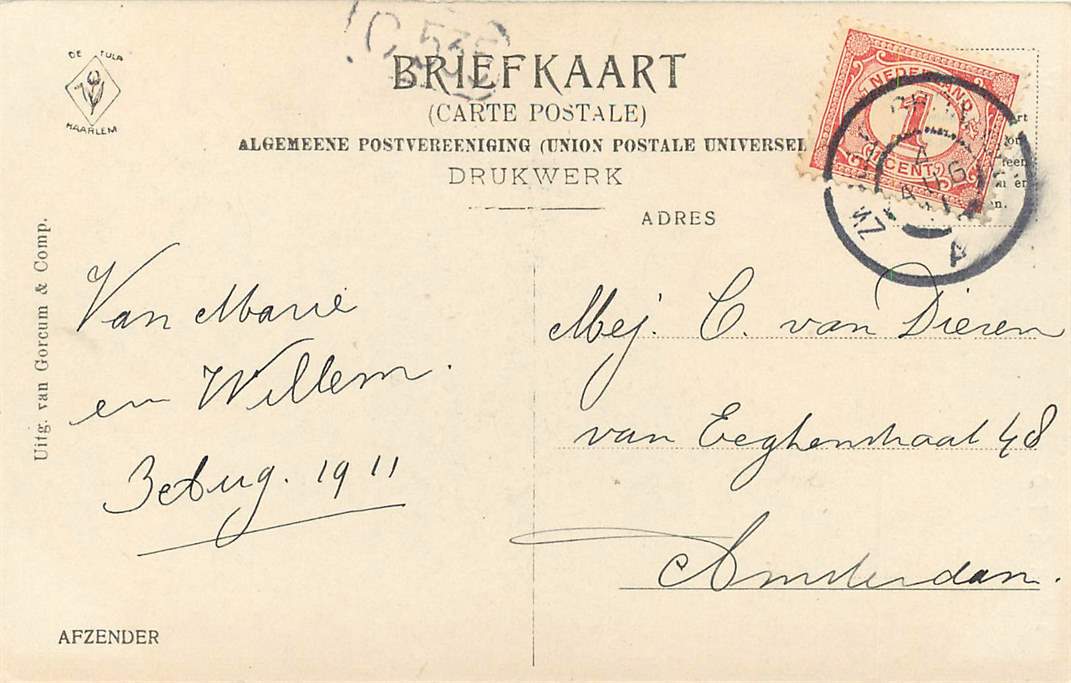 DE TULP
HAARLEM
C 535
BRIEFKAART
(CARTE POSTALE)
ALGEMEENE POSTVEREENIGING (UNION POSTALE UNIVERSEL
DRUKWERK
NEDERLAND
1
1 CENT
ZW
A
4 AUG
ADRES
Uitg. van Gorcum & Comp.
Van Marie
en Willem.
3 Aug. 1911
Mej. C. van Dieren
van Eeghenstraat 48
Amsterdam.
AFZENDER